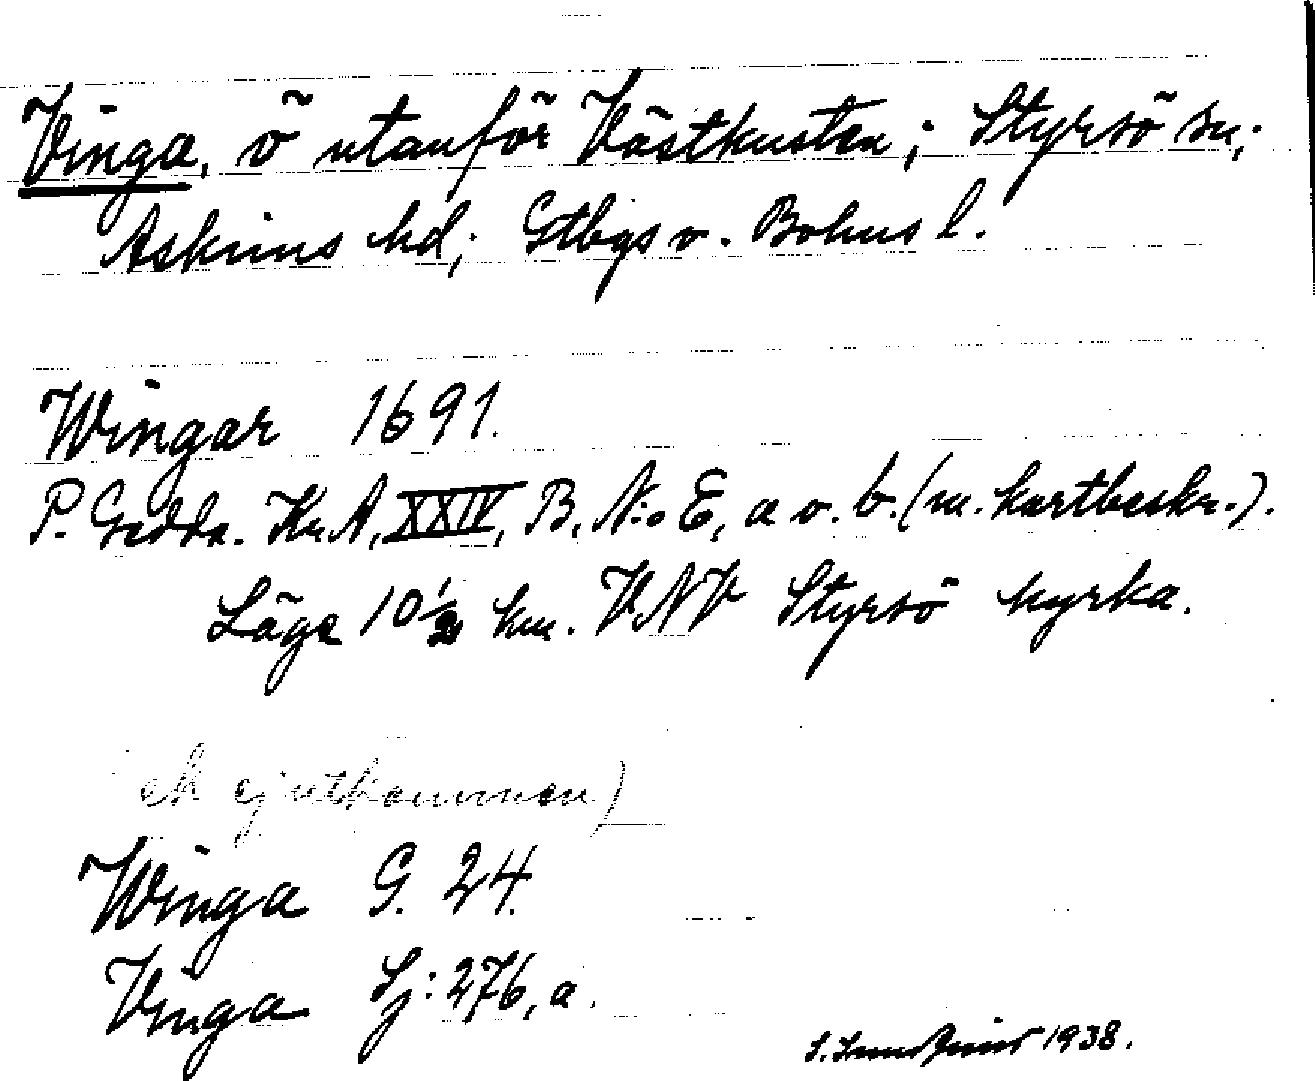 Vinga, ö utanför Västkusten; Styrsö sn;
Askims hd; Gtbgs o. Bohus l.
Wingar 1691.
P. Gedda. Kr.A, XXIV, B, N:o E, a o. b. (m. kartbeskr.).
Läge 10 1/2 km. VNV Styrsö kyrka.
ek ej utkommen)
Winga G. 24.
Vinga Sj: 276, a.
1938.